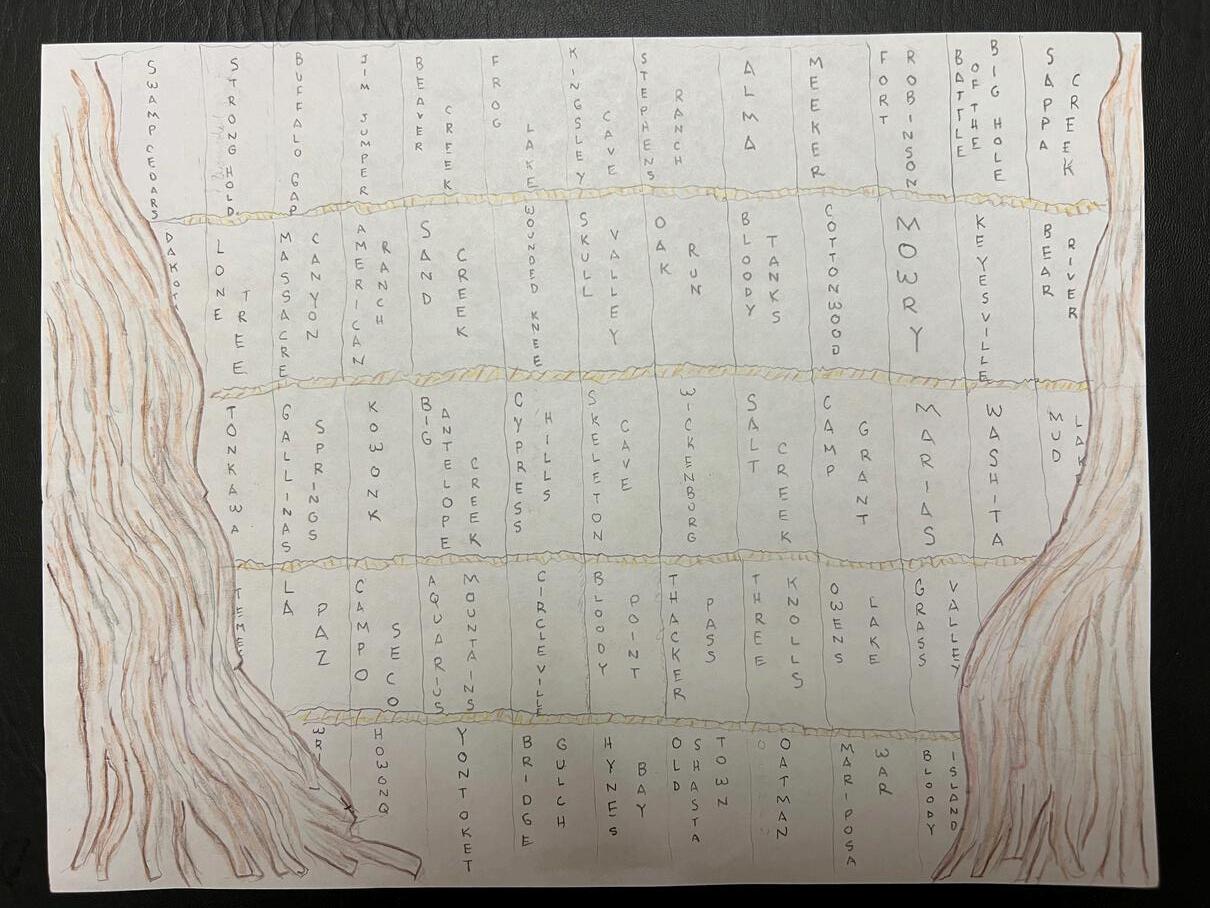 SWAMP CEDARS
STRONGHOLD
BUFFALO GAP
JIM JUMPER
BEAVER CREEK
FROG LAKE
KINGSLEY CAVE
STEPHENS RANCH
ALMA
MEEKER
FORT ROBINSON
BATTLE OF THE BIG HOLE
SAPPA CREEK
DAKOTA
LONE TREE
MASSACRE CANYON
AMERICAN RANCH
SAND CREEK
WOUNDED KNEE
SKULL VALLEY
OAK RUN
BLOODY TANKS
COTTONWOOD
MOWRY
KEYESVILLE
BEAR RIVER
TONKAWA
GALLINAS SPRINGS
KOWONK
BIG ANTELOPE CREEK
CYPRESS HILLS
SKELETON CAVE
WICKENBURG
SALT CREEK
CAMP GRANT
MARIAS
WASHITA
MUD LAKE
TEMEC
LA PAZ
CAMPO SECO
AQUARIUS MOUNTAINS
CIRCLEVILLE
BLOODY POINT
THACKER PASS
THREE KNOLLS
OWENS LAKE
GRASS VALLEY
WRI
HOWONQ
YONTOKET
BRIDGE GULCH
HYNES BAY
OLD SHASTA TOWN
OATMAN
MARIPOSA WAR
BLOODY ISLAND